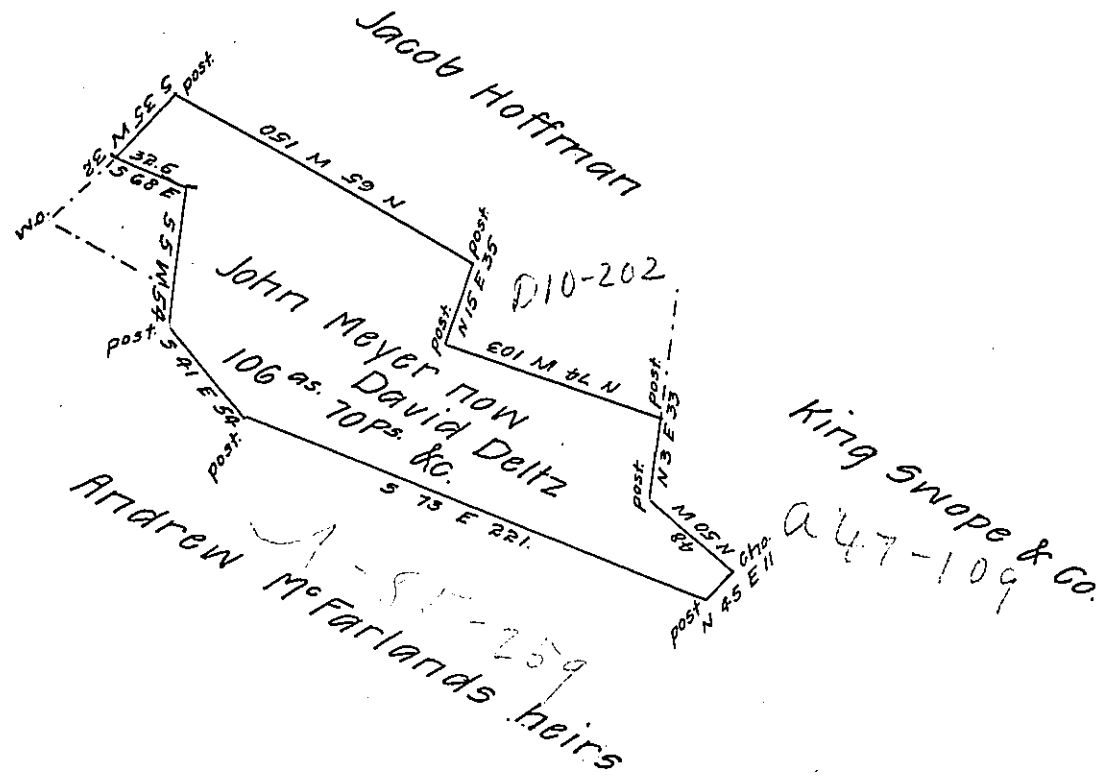 Jacob Hoffman
post.
S 35 W
32
32.6
S 68 E
W.O.
S 5 W 54
post.
S 41 E 54
post.
N 65 W 150
post.
N 15 E 35
post.
D10-202
N 74 W 103
post.
N 3 E 33
post.
N 50 W
48
cho.
N 45 E 11
post
John Meyer now
David Deltz
106 as. 70 Ps. &c.
S 73 E 221.
King Swope & Co.
a 47-109
Andrew McFarlands heirs
-259